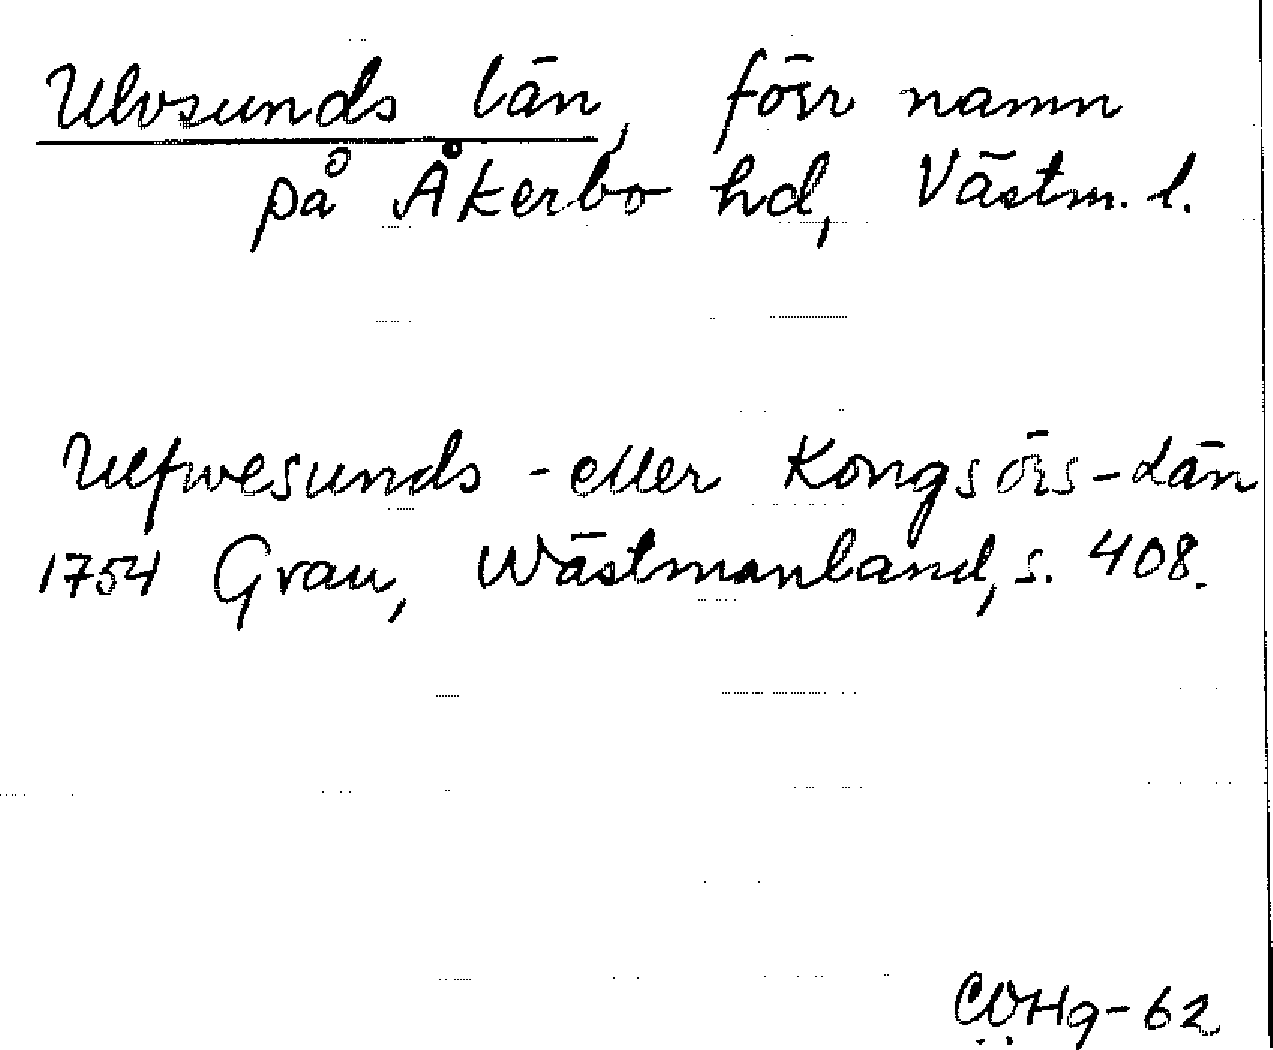 Ulvsunds län, förr namn
på Åkerbo hd, Västm. l.
Ulfwesunds - eller Kongsörs-Län
1754 Grau, Wästmanland, s. 408.
COHg-62